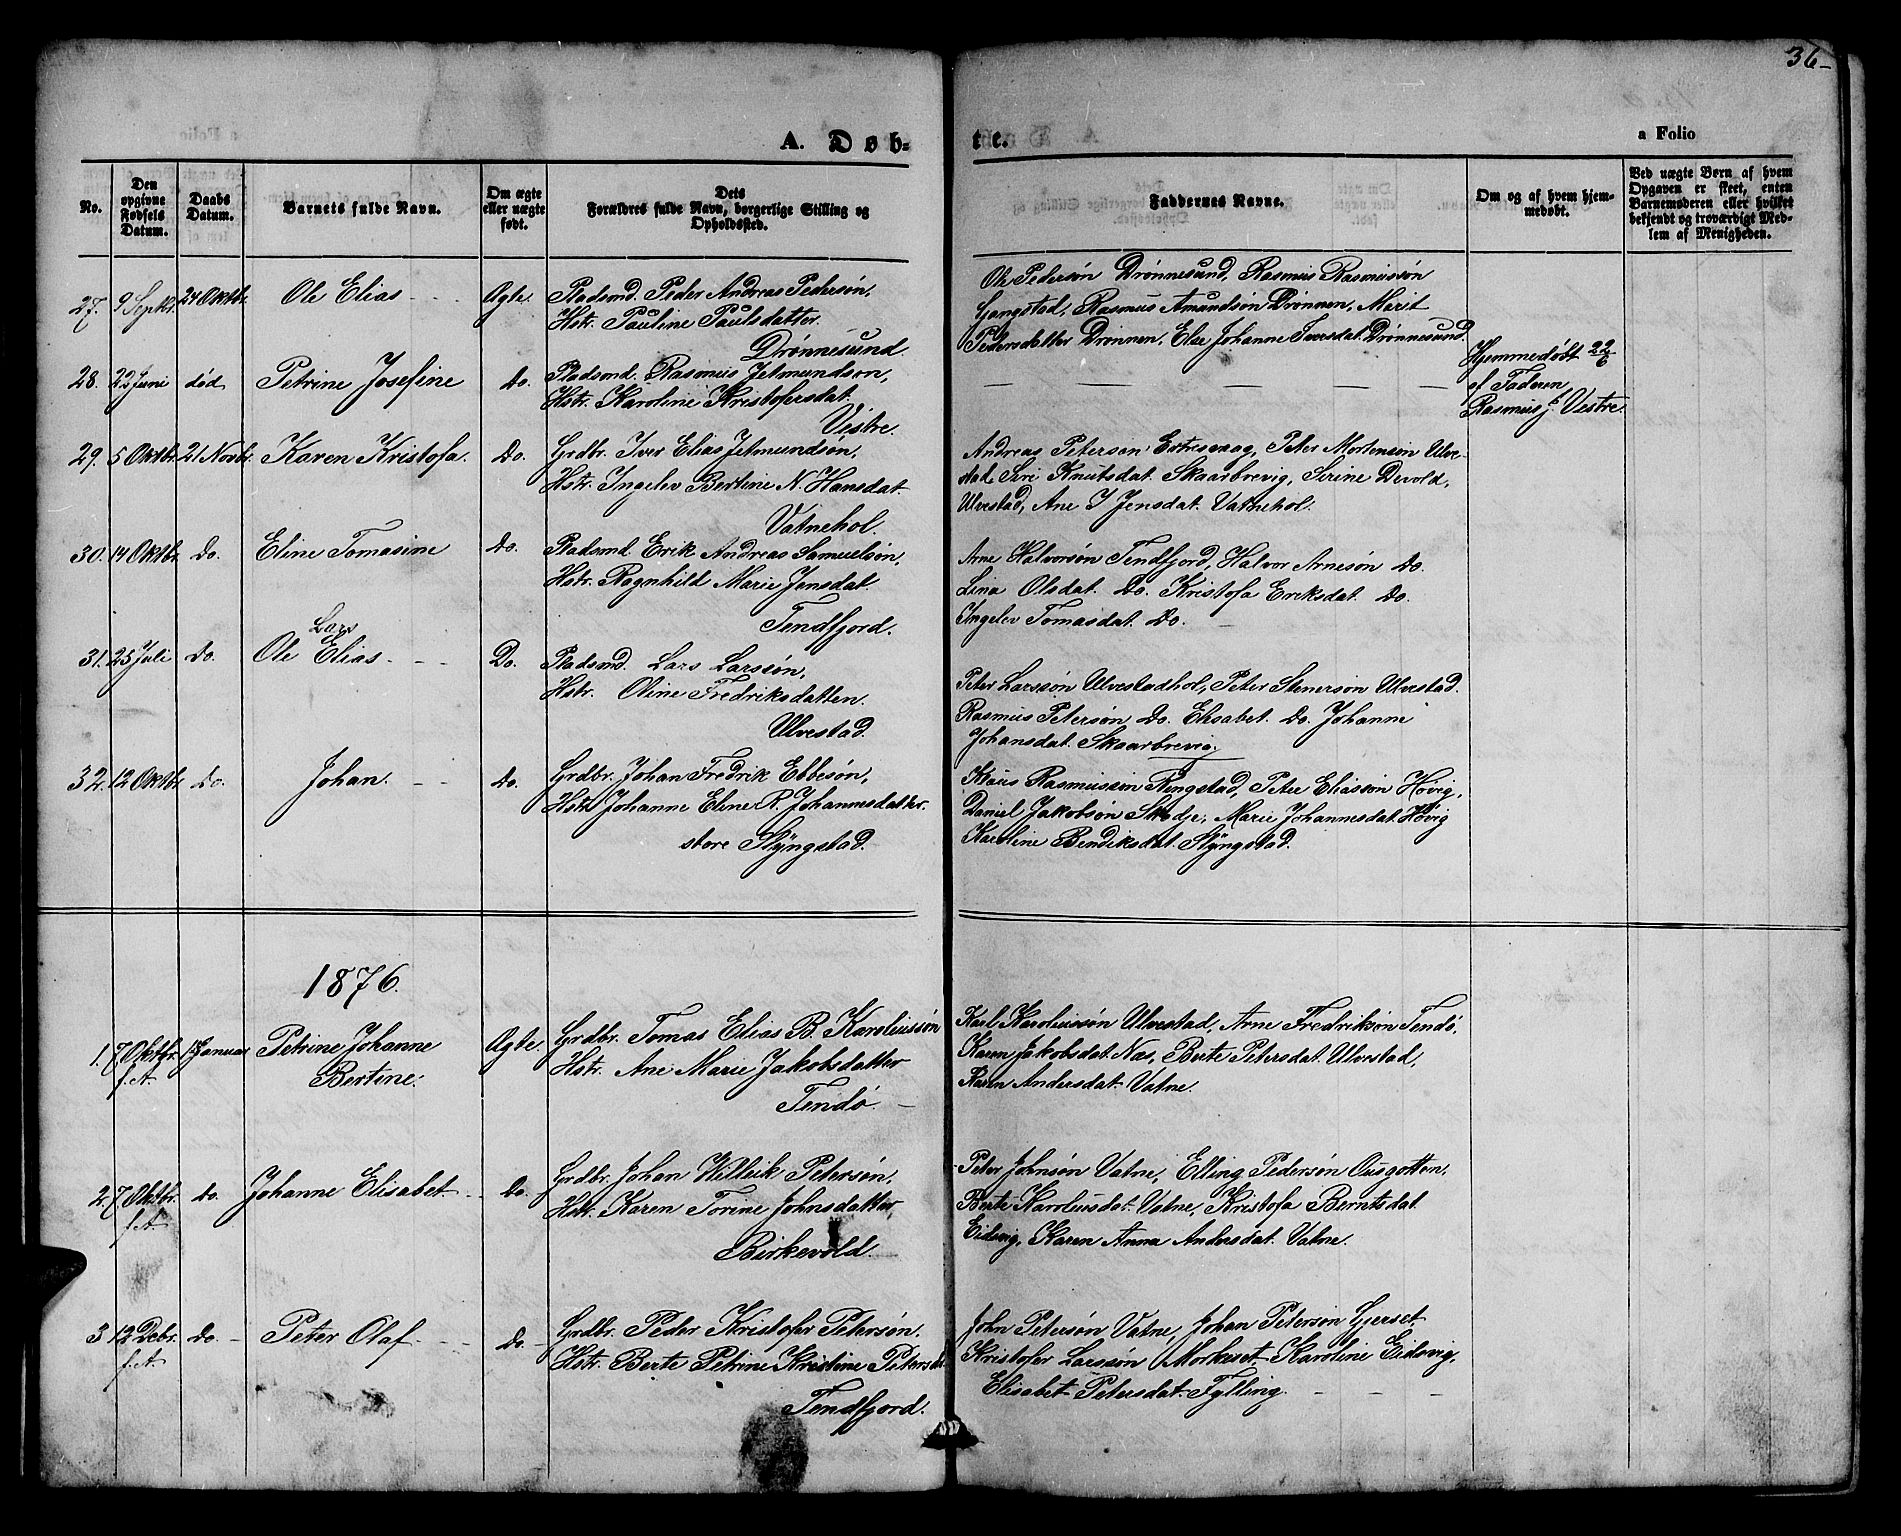 36
A. Døb-
te.
a Folio
No.
Den opgivne Fødsels Datum.
Daabs Datum.
Barnets fulde Navn.
Om ægte eller uægte født.
Dets
Forældres fulde Navn, borgerlige Stilling og
Opholdssted.
Faddernes Navne.
Om og af hvem hjem-
medøbt.
Ved uægte Børn af hvem
Opgaven er skeet, enten
Barnemoderen eller hvilket
bekjendt og troværdigt Med-
lem af Menigheden.
27. 9 Septbr. 24 Oktbr. Ole Elias Ægte. Pladsmd. Peder Andreas Pedersøn,
Hstr. Pauline Paulsdatter.
Drønnesund.
Ole Pedersøn Drønnesund, Rasmus Rasmussøn
Gangstad, Rasmus Amundsøn Drønnen, Marit
Pedersdatter Drønnen, Else Johanne Iversdat. Drønnesund.
28. 22 Juni død Petrine Josefine do. Pladsmd. Rasmus Jetmundsøn,
Hstr. Karoline Kristofersdat.
Vestre.
Hjemmedøbt 22/6
af Faderen
Rasmus J. Vestre.
29. 5 Oktbr. 21 Novbr. Karen Kristofa. Do. Grdbr. Iver Elias Jetmundsøn,
Hstr. Ingelev Bertine N. Hansdat.
Vatnehol.
Andreas Petersøn Ertresvaag, Peter Mortensøn Ulve-
stad, Siri Knutsdat. Skaarbrevig, Sirine Devold,
Ulvestad, Ane I Jensdat. Vatnehol.
30. 14 Oktbr. Do. Eline Tomasine Do. Pladsmd. Erik Andreas Samuelsøn,
Hstr. Ragnhild Marie Jensdat.
Tendfjord.
Arne Halvorsøn Tendfjord, Halvor Arnesøn do.
Lina Olsdat. Do. Kristofa Eriksdat. do.
Ingelev Tomasdat. do.
Lars
31. 25 Juli Do. Ole Elias Do. Pladsmd. Lars Larssøn,
Hstr. Oline Fredriksdatter.
Ulvestad.
Peter Larssøn Ulvestadhol, Peter Stenersøn Ulvestad.
Rasmus Petersøn do. Elisabet do. Johanne
Johansdat. Skaarbrevig.
32. 12 Oktbr. Do. Johan. do. Grdbr. Johan Fredrik Ebbesøn,
Hstr. Johanne Eline R. Johannesdatter.
store Slÿngstad.
Klaus Rasmussøn Ringstad, Peter Eliassøn Høvig,
Daniel Jakobsøn Skodje, Marie Johannesdat. Høvig
Karoline Bendiksdat. Slÿngstad.
1876.
1. 7 Oktbr. f.A. Januar Petrine Johanne
Bertine. Ægte. Grdbr. Tomas Elias B. Karoliussøn
Hstr. Ane Marie Jakobsdatter
Tendø.
Karl Karoliussøn Ulvestad, Arne Fredriksøn Tendø,
Karen Jakobsdat. Næs, Berte Petersdat. Ulvestad,
Karen Andersdat. Vatne.
2. 7 Oktbr. f.A. do. Johanne Elisabet do. Grdbr. Johan Petersøn,
Hstr. Karen Torine Johnsdatter
Birkevold.
Peter Johnsøn Vatne, Elling Pedersøn
Berte Karoliusdat. Vatne, Kristofa Berntsdat.
Eidsvig, Karen Anna Andersdat. Vatne.
3 12 Debr. f.A. do. Peter Olaf do. Grdbr. Peder Kristofer Petersøn.
Hstr. Berte Petrine Kristine Petersdt.
Tendfjord.
John Petersøn Vatne, Johan Petersøn Gjerset
Kristofer Larssøn Morkeset, Karoline Eidsvig,
Elisabet Petersdat. Fylling.